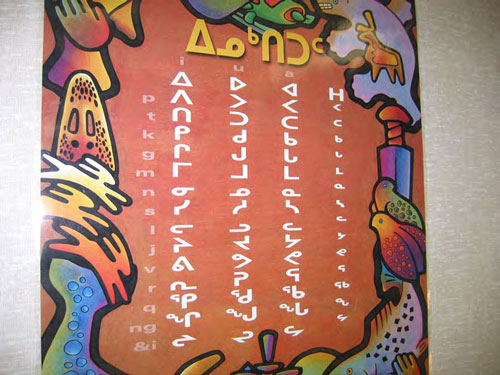 ᐃᓄᒃᑎᑐᑦ
i u a
ᐃ ᐅ ᐊ ᕼ
p ᐱ ᐳ ᐸ ᑉ
t ᑎ ᑐ ᑕ ᑦ
k ᑭ ᑯ ᑲ ᒃ
g ᒋ ᒍ ᒐ ᒡ
m ᒥ ᒧ ᒪ ᒻ
n ᓂ ᓄ ᓇ ᓐ
s ᓯ ᓱ ᓴ ᔅ
l ᓕ ᓗ ᓚ ᓪ
j ᔨ ᔪ ᔭ ᔾ
v ᕕ ᕗ ᕙ ᕝ
r ᕆ ᕈ ᕋ ᕐ
q ᕿ ᖁ ᖃ ᖅ
ng ᖏ ᖑ ᖓ ᖕ
&i ᖠ ᖢ ᖤ ᖦ